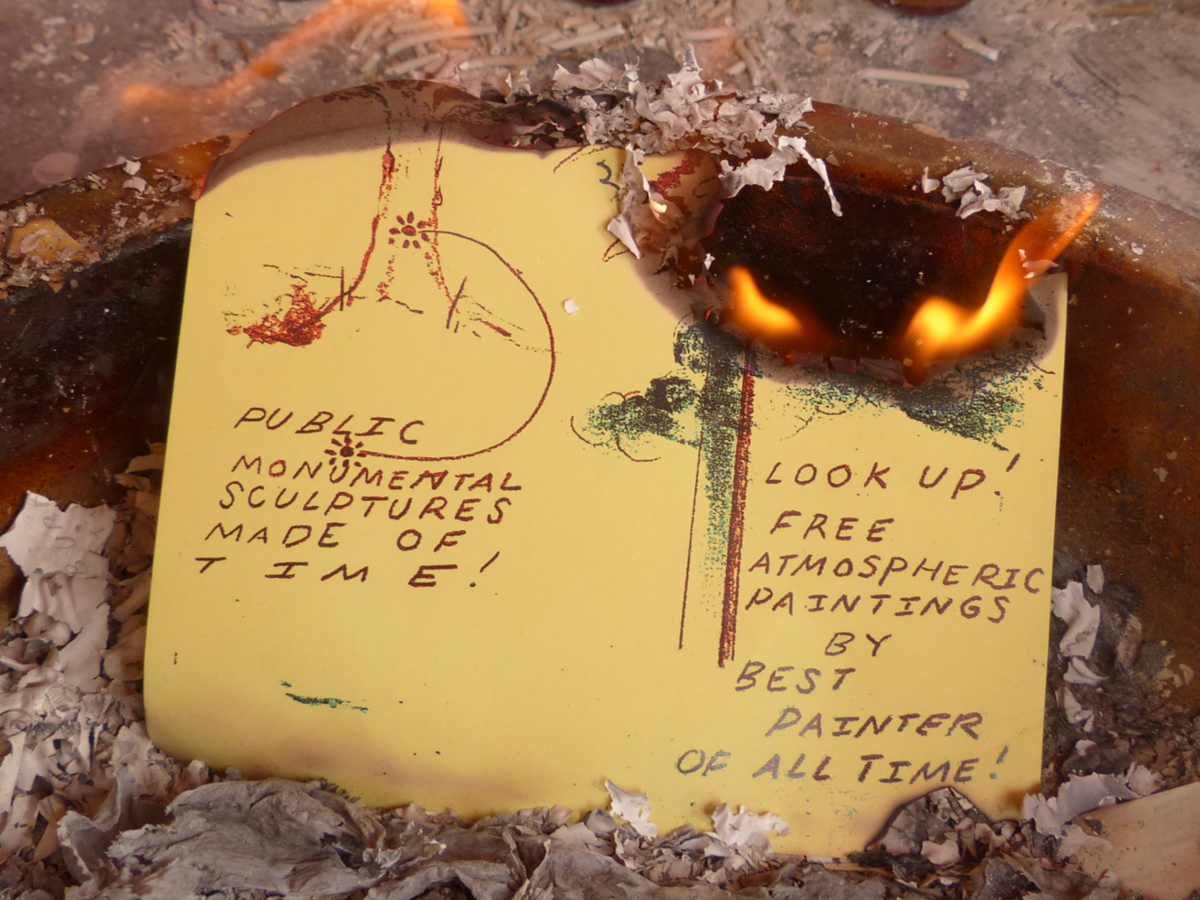 PUBLIC
MONUMENTAL
SCULPTURES
MADE OF
TIME!
LOOK UP!
FREE
ATMOSPHERIC
PAINTINGS
BY
BEST
PAINTER
OF ALL TIME!